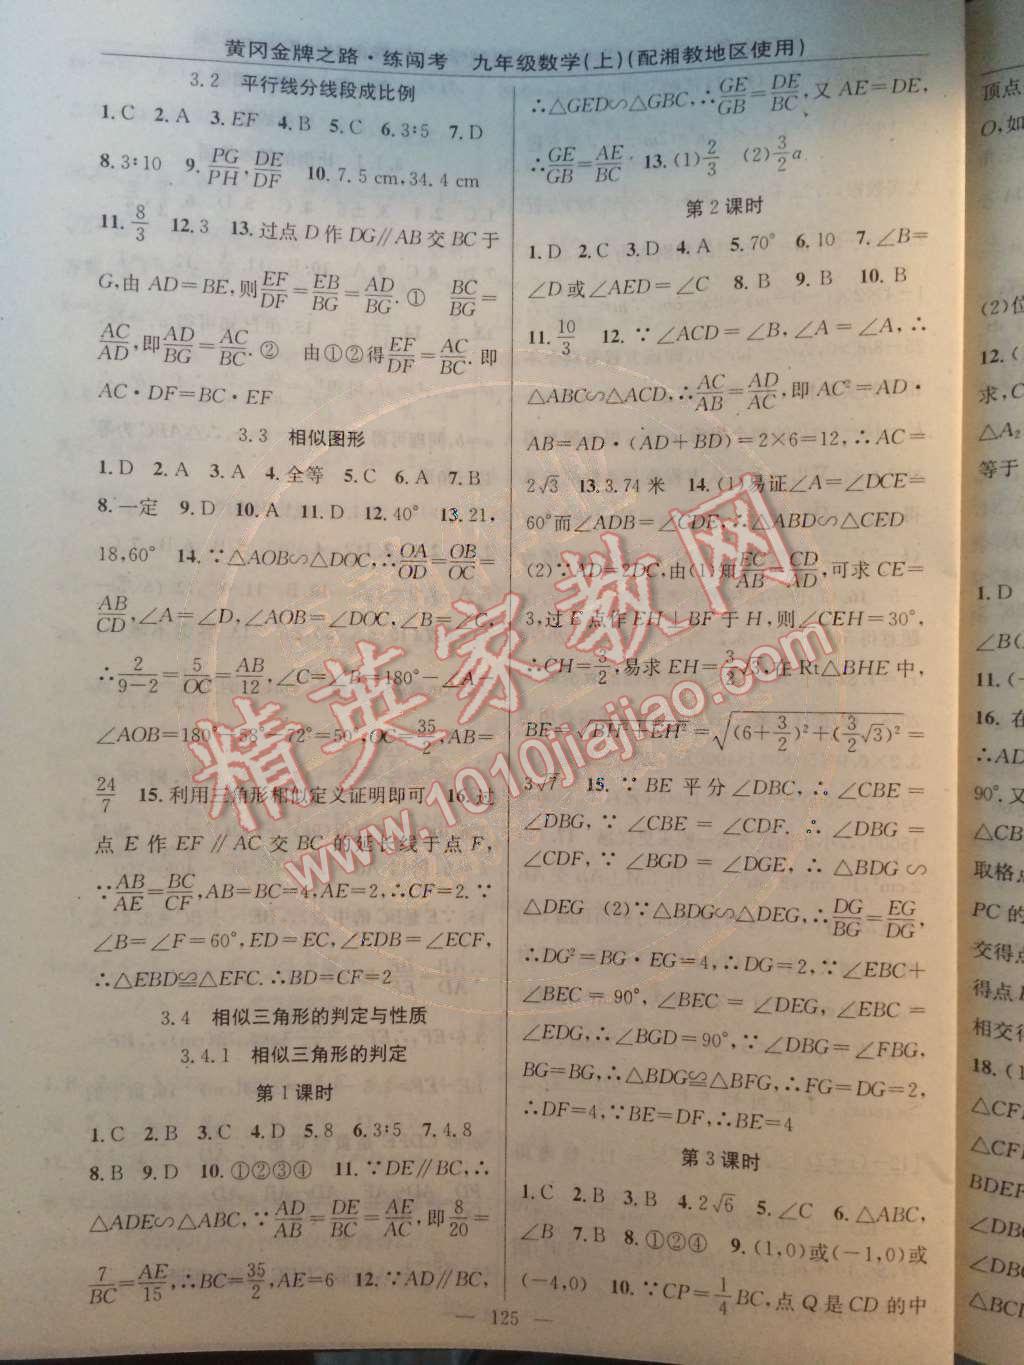 黄冈金牌之路·练闯考 九年级数学(上)(配湘教地区使用)
3.2 平行线分线段成比例
1.C 2.A 3.EF 4.B 5.C 6.3∶5 7.D
8.3∶10 9.PG/PH,DE/DF 10.7.5 cm,34.4 cm
11.8/3 12.3 13.过点 D 作 DG∥AB 交 BC 于
G,由 AD=BE,则EF/DF=EB/BG=AD/BG.① BC/BG=
AC/AD,即AD/BG=AC/BC.② 由①②得EF/DF=AC/BC.即
AC·DF=BC·EF
3.3 相似图形
1.D 2.A 3.A 4.全等 5.C 6.A 7.B
8.一定 9.D 10.A 11.D 12.40° 13.21,
18,60° 14.∵△AOB∽△DOC,∴OA/OD=OB/OC=
AB/CD,∠A=∠D,∠AOB=∠DOC,∠B=∠C,
∴2/(9-2)=5/OC=AB/12,∠C=∠B=180°-∠A-
∠AOB=180°-58°-72°=50°,OC=35/2,AB=
24/7 15.利用三角形相似定义证明即可 16.过
点 E 作 EF∥AC 交 BC 的延长线于点 F,
∵AB/AE=BC/CF,AB=BC=4,AE=2,∴CF=2.∵
∠B=∠F=60°,ED=EC,∠EDB=∠ECF,
∴△EBD≌△EFC.∴BD=CF=2
3.4 相似三角形的判定与性质
3.4.1 相似三角形的判定
第1课时
1.C 2.B 3.C 4.D 5.8 6.3∶5 7.4.8
8.B 9.D 10.①②③④ 11.∵DE∥BC,∴
△ADE∽△ABC,∵AD/AB=DE/BC=AE/AC,即8/20=
7/BC=AE/15,∴BC=35/2,AE=6 12.∵AD∥BC,
∴△GED∽△GBC,∴GE/GB=DE/BC,又 AE=DE,
∴GE/GB=AE/BC 13.(1)2/3 (2)3/2a
第2课时
1.D 2.C 3.D 4.A 5.70° 6.10 7.∠B=
∠D或∠AED=∠C 8.B 9.B 10.B
11.10/3 12.∵∠ACD=∠B,∠A=∠A,∴
△ABC∽△ACD,∴AC/AB=AD/AC,即 AC²=AD·
AB=AD·(AD+BD)=2×6=12,∴AC=
2√3 13.3.74 米 14.(1)易证∠A=∠DCE=
60°而∠ADB=∠CDE,∴△ABD∽△CED
(2)∵AD=2DC,由(1)知EC/AB=CD/AD,可求 CE=
3,过 E 点作 EH⊥BF 于 H,则∠CEH=30°,
∴CH=3/2,易求 EH=3/2√3,在 Rt△BHE 中,
BE=√(BH²+EH²)=√((6+3/2)²+(3/2√3)²)=
3√7 15.∵BE 平分∠DBC,∴∠CBE=
∠DBG,∵∠CBE=∠CDF.∴∠DBG=
∠CDF,∵∠BGD=∠DGE,∴△BDG∽
△DEG (2)∵△BDG∽△DEG,∴DG/BG=EG/DG,
∴DG²=BG·EG=4,∴DG=2,∵∠EBC+
∠BEC=90°,∠BEC=∠DEG,∠EBC=
∠EDG,∴∠BGD=90°,∵∠DBG=∠FBG,
BG=BG,∴△BDG≌△BFG,∴FG=DG=2,
∴DF=4,∵BE=DF,∴BE=4
第3课时
1.C 2.B 3.B 4.2√6 5.∠C 6.△ABC,
∠B 7.B 8.①②④ 9.(1,0)或(-1,0)或
(-4,0) 10.∵CP=1/4BC,点 Q 是 CD 的中
— 125 —
顶点
O,如
(2)位
12.(
求,C
△A₂
等于
1.D
∠B(
11.(-
16.在
∴AD
90°.又
△CB
取格点
PC的
交得点
得点
相交得
18.(1
△CF
△CF
BDEF
∠DB
∠DB
△BC
精英家教网
www.1010jiajiao.com